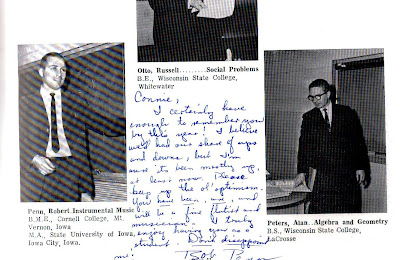 Otto, Russell.........Social Problems
B.E., Wisconsin State College,
Whitewater
Connie,
I certainly have
enough to remember you
by this year! I believe
we'd had our share of ups
and downs, but I'm
sure its been mostly up,
at least now. Please
keep up the ol' optimism.
You have been, are, and
will be a fine flutist and
musician. I truly
enjoy having you as a
student. Don't disappoint
me!
Bob
Penn, Robert Instrumental Music
B.M.E., Cornell College, Mt.
Vernon, Iowa
M.A., State University of Iowa,
Iowa City, Iowa.
Peters, Alan..Algebra and Geometry
B.S., Wisconsin State College,
LaCrosse